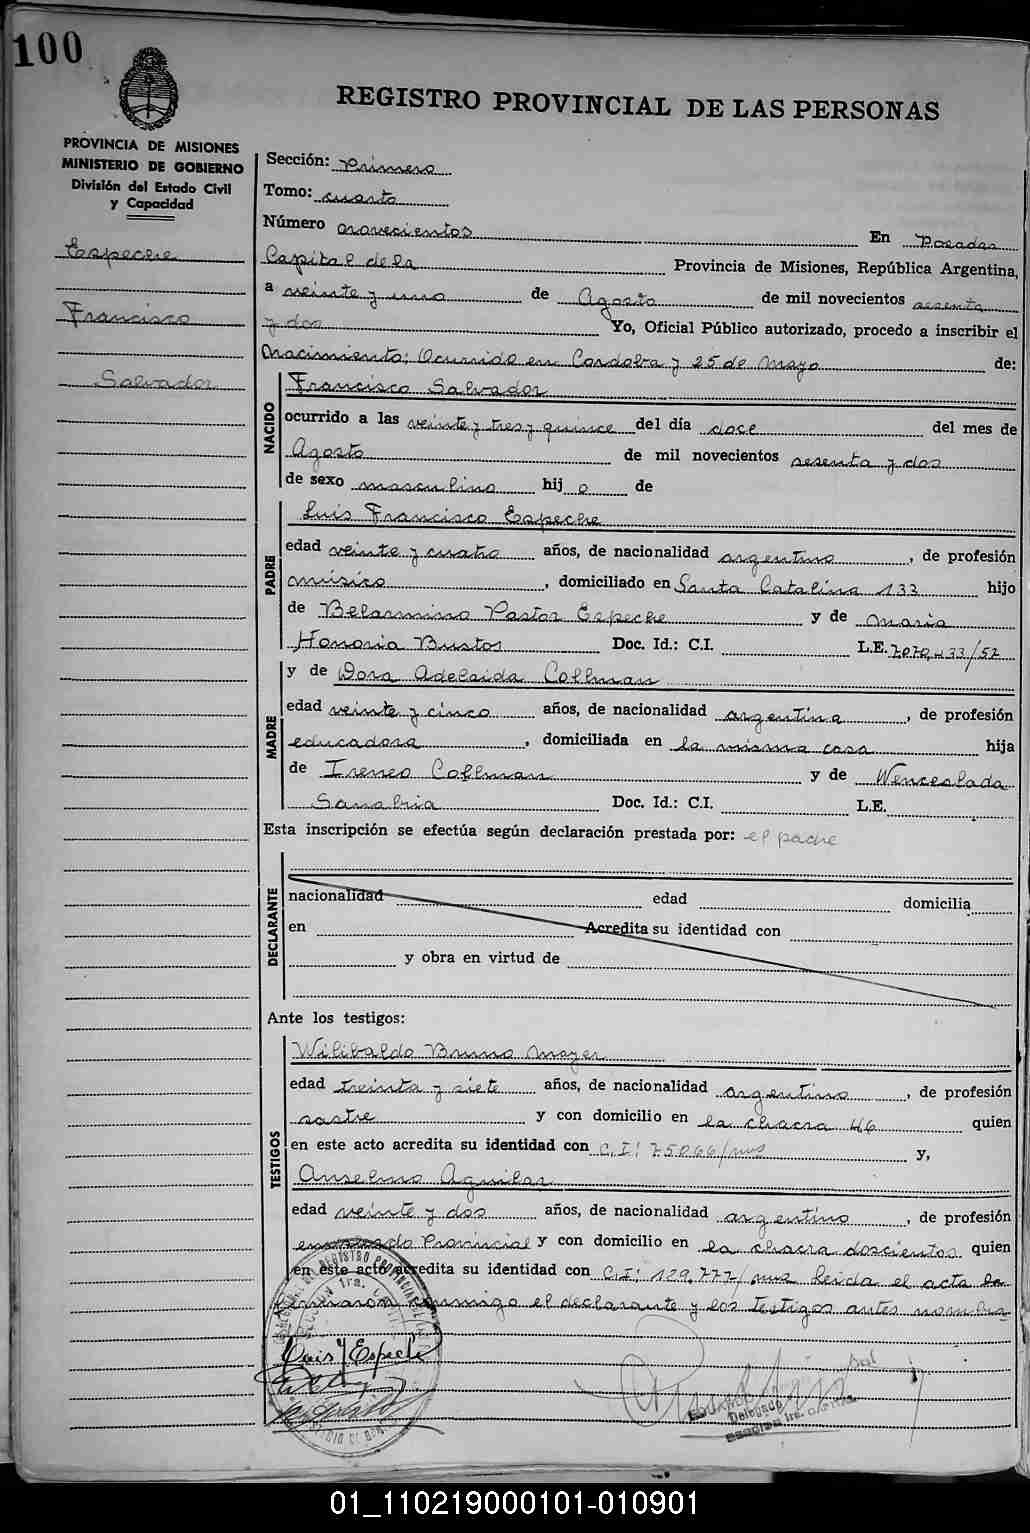 100
REGISTRO PROVINCIAL DE LAS PERSONAS
PROVINCIA DE MISIONES
MINISTERIO DE GOBIERNO
División del Estado Civil
y Capacidad
Espeche
Francisco
Salvador
Sección: Primera
Tomo: cuarto
Número novecientos En Posadas
Capital de la Provincia de Misiones, República Argentina,
a veinte y uno de Agosto de mil novecientos sesenta
y dos Yo, Oficial Público autorizado, procedo a inscribir el
Nacimiento: Ocurrido en Cordoba y 25 de Mayo de:
NACIDO
Francisco Salvador
ocurrido a las veinte y tres y quince del día doce del mes de
Agosto de mil novecientos sesenta y dos
de sexo masculino hij o de
PADRE
Luis Francisco Espeche
edad veinte y cuatro años, de nacionalidad argentino, de profesión
músico, domiciliado en Santa Catalina 133 hijo
de Belarmino Pastor Espeche y de Maria
Honoria Bustos Doc. Id.: C.I. L.E.
MADRE
y de Dora Adelaida Collman
edad veinte y cinco años, de nacionalidad argentina, de profesión
educadora, domiciliada en la misma casa hija
de Ireneo Collman y de Wenceslada
Sanabria Doc. Id.: C.I. L.E.
Esta inscripción se efectúa según declaración prestada por: el padre
DECLARANTE
nacionalidad edad domicilia
en Acredita su identidad con
y obra en virtud de
Ante los testigos:
TESTIGOS
Wilibaldo Bruno Mayer
edad treinta y siete años, de nacionalidad argentino, de profesión
sastre y con domicilio en la chacra 46 quien
en este acto acredita su identidad con C.I: 75066/mns y,
Anselmo Aguilar
edad veinte y dos años, de nacionalidad argentino, de profesión
empleado Provincial y con domicilio en la chacra doscientos quien
en este acto acredita su identidad con C.I: 129.777/mns Leida el acta la
firmaron conmigo el declarante y los testigos antes nombra
Luis F Espeche
Delegado
01_110219000101-010901